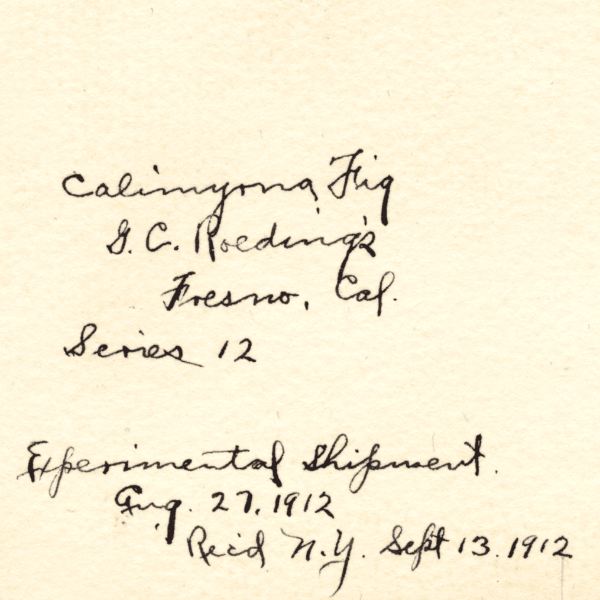 Calimyrna Fig
G. C. Roeding's
Fresno, Cal.
Series 12
Experimental Shipment.
Aug. 27, 1912
Rec'd N.Y. Sept 13. 1912